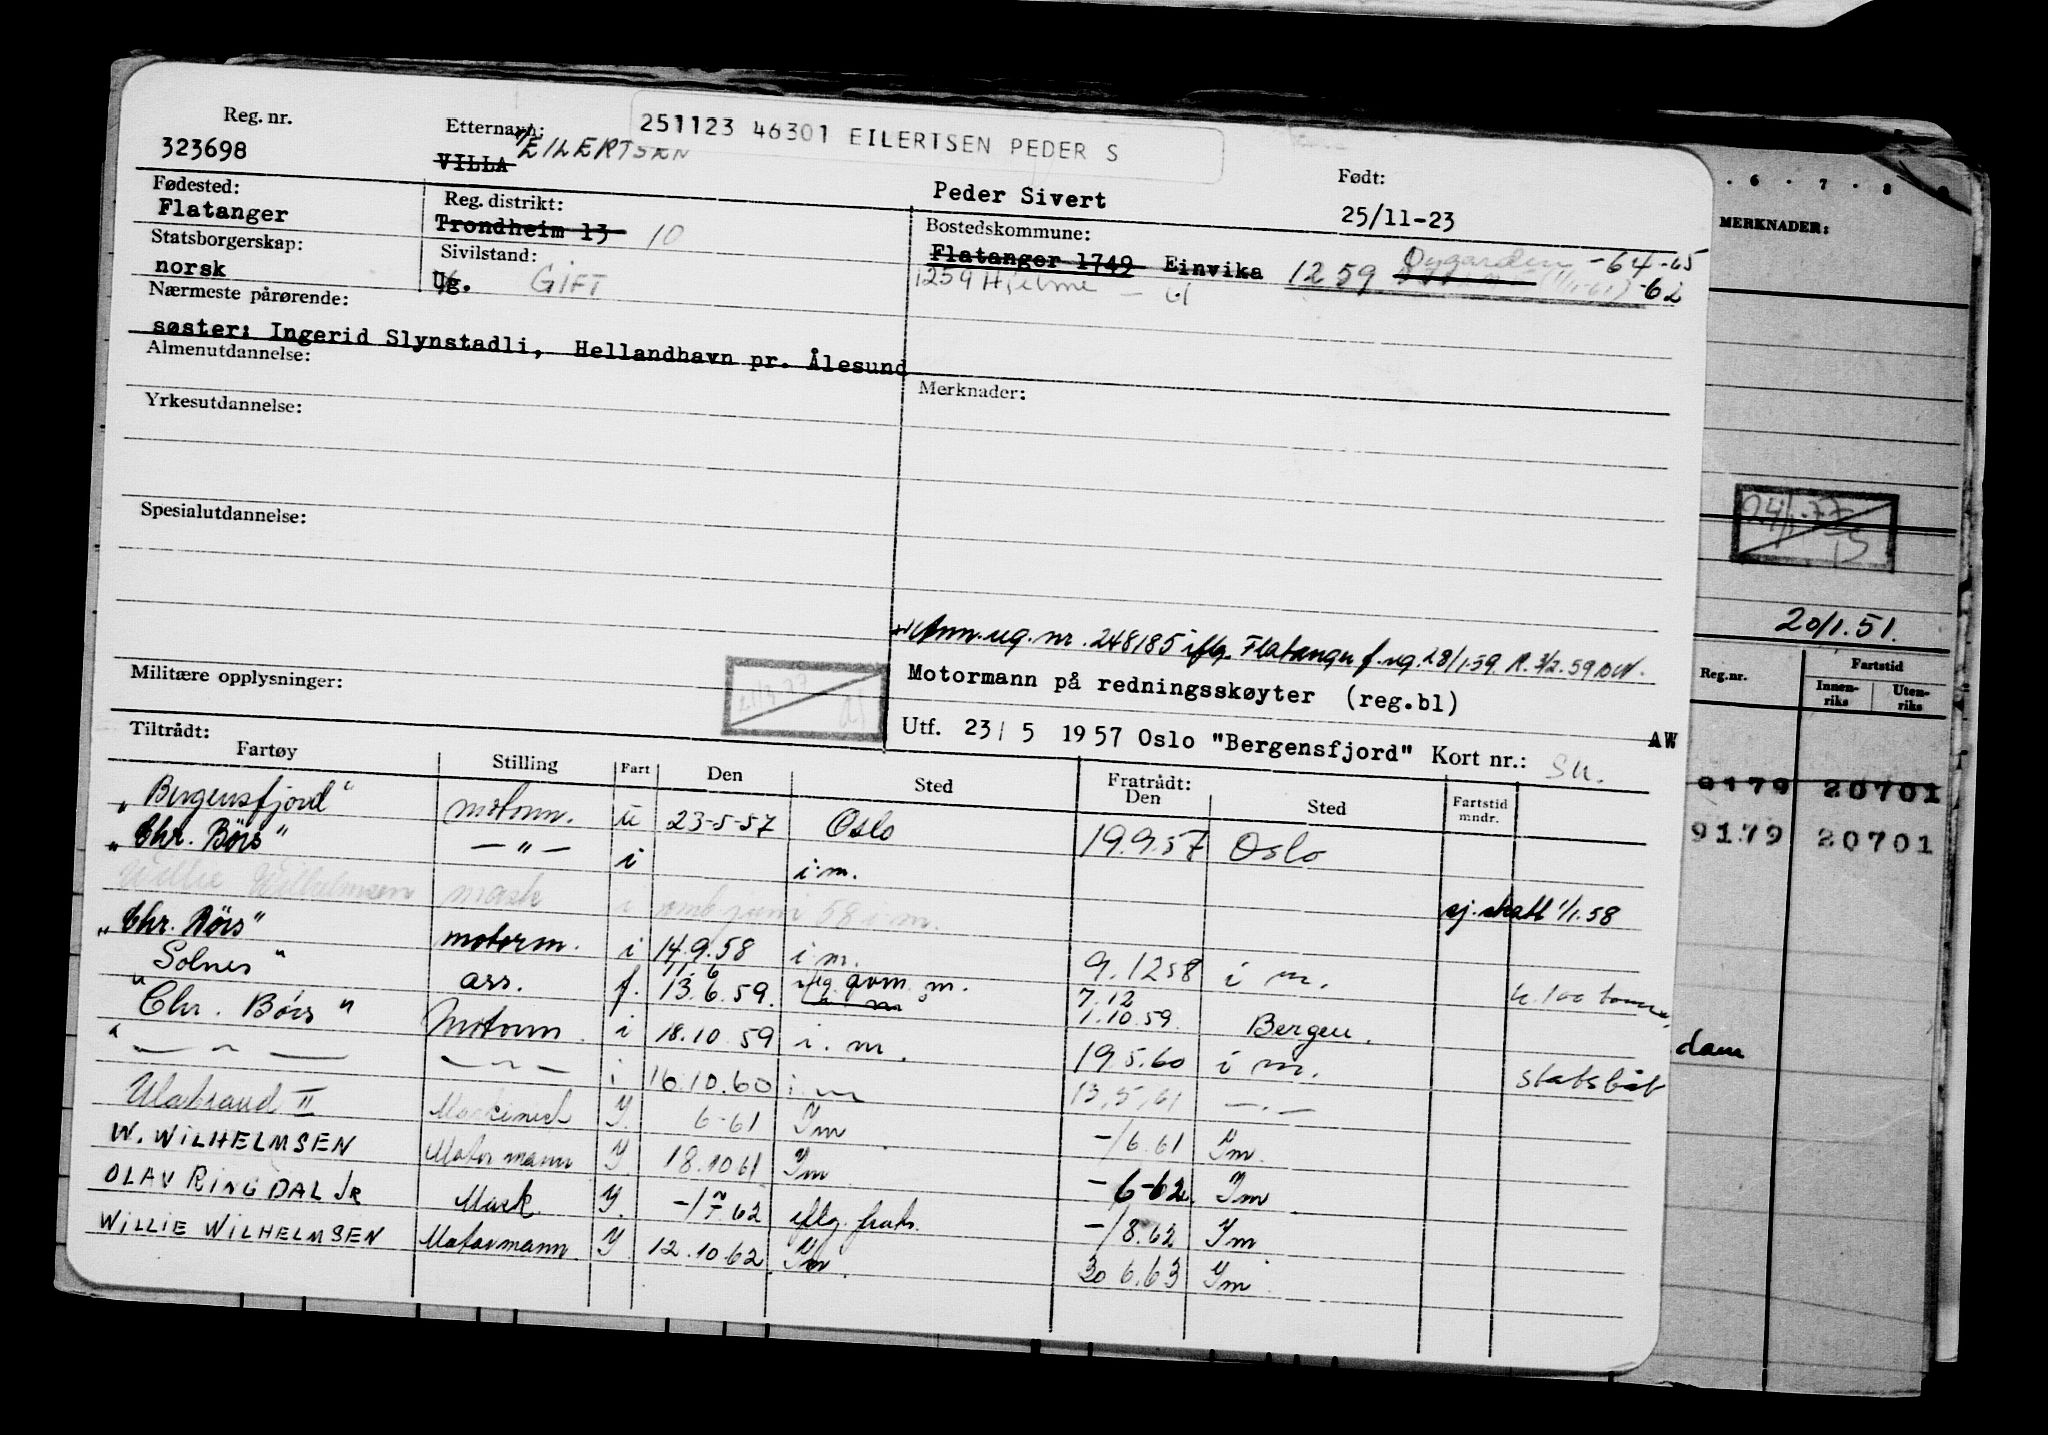 Reg. nr.
323698
Etternavn:
VILLA EILERTSEN
251123 46301 EILERTSEN PEDER S
Peder Sivert
Født:
25/11-23
Fødested:
Flatanger
Reg. distrikt:
Trondheim 13 10
Bostedskommune:
Flatanger 1749 Einvika 1259 Øygarden -64-65
1259 Hjelme - 61 -62
Statsborgerskap:
norsk
Sivilstand:
Ug. GIFT
Nærmeste pårørende:
søster: Ingerid Slynstadli, Hellandhavn pr. Ålesund
Almenutdannelse:
Merknader:
Yrkesutdannelse:
Spesialutdannelse:
Ann. reg. nr. 248185 iflg. Flatanger f. reg. 28/1.59
Motormann på redningsskøyter (reg.bl)
Militære opplysninger:
Utf. 23/ 5 1957 Oslo "Bergensfjord" Kort nr.: AW
Tiltrådt:
Fartøy Stilling Fart Den Sted Fratrådt: Den Sted Fartstid mndr.
"Bergensfjord" motorm. u 23-5-57 Oslo 19.9.57 Oslo
"Chr. Börs" — " — i i.m. sj. skatt 1/1.58
Willie Wilhelmsen mask i omkr juni 58 i.m.
"Chr. Börs" motorm. i 14.9.58 i.m. 9.12 58 i m.
"Solnes" ass. f. 11.6 13.6.59. 7.12 1.10.59. Bergen.
"Chr. Börs" Motorm. i 18.10 59 i.m. 19.5.60 i m. statsbåt
— " — — " — i 16.10.60 i m 13.5.61 — " —
Ulabrand II Maskinist Y. 6-61 Ym -/6.61 Ym.
W. WILHELMSEN Motormann Y 18.10 61 Ym -6-62. Ym
OLAV RINGDAL JR Mask. Y. -/7 62 iflg. frakt. -/8.62 Ym
WILLIE WILHELMSEN Motormann Y. 12.10.62 Ym. 30 6.63 Ym
. 6 . 7 . 8
MERKNADER:
20/1.51.
Reg.nr. Fartstid
Innenriks Utenriks
9179 20701
9179 20701
dam